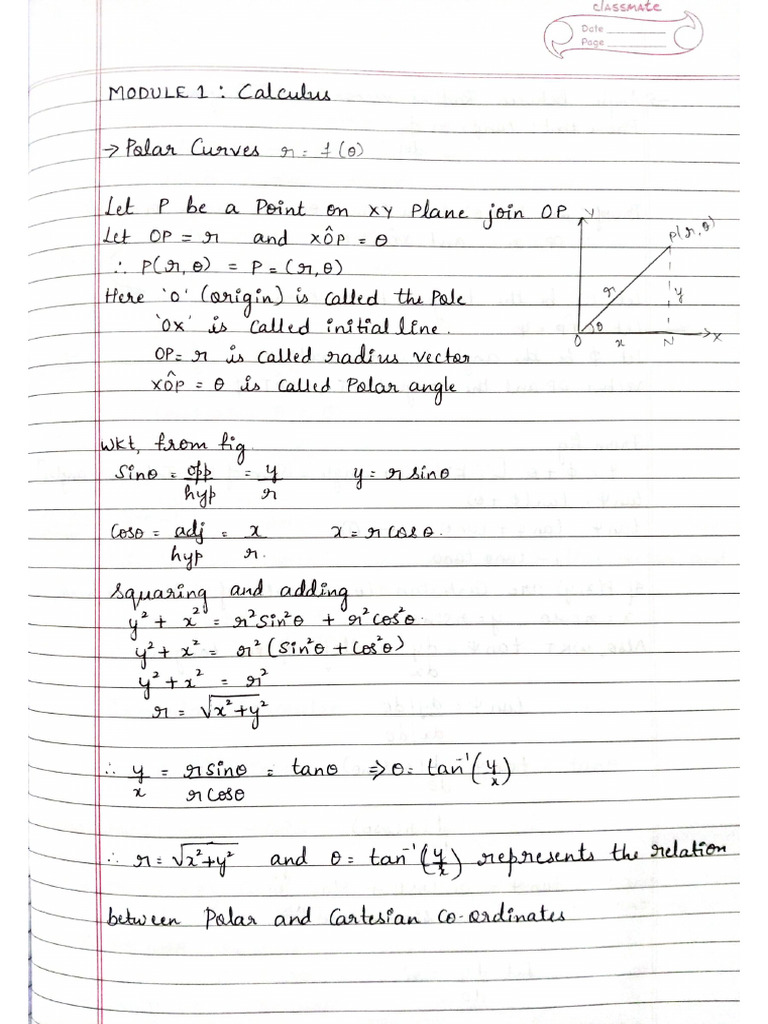 classmate
Date
Page
MODULE 1 : Calculus
→ Polar Curves r = f(θ)
Let P be a Point on XY Plane join OP
Let OP = r and XÔP = θ
∴ P(r, θ) = P = (r, θ)
Here 'O' (origin) is called the Pole
'OX' is called initial line.
OP = r is called radius vector
XÔP = θ is called Polar angle
Y
P(r, θ)
r
y
θ
O
x
N
X
WKT, from fig.
Sinθ = opp/hyp = y/r y = r sinθ
Cosθ = adj/hyp = x/r. x = r cosθ.
Squaring and adding
y² + x² = r² sin²θ + r² cos²θ.
y² + x² = r² (sin²θ + cos²θ)
y² + x² = r²
r = √x²+y²
∴ y/x = r sinθ/r cosθ = tanθ ⇒ θ = tan⁻¹(y/x)
∴ r = √x²+y² and θ = tan⁻¹(y/x) represents the relation
between Polar and Cartesian Co-ordinates